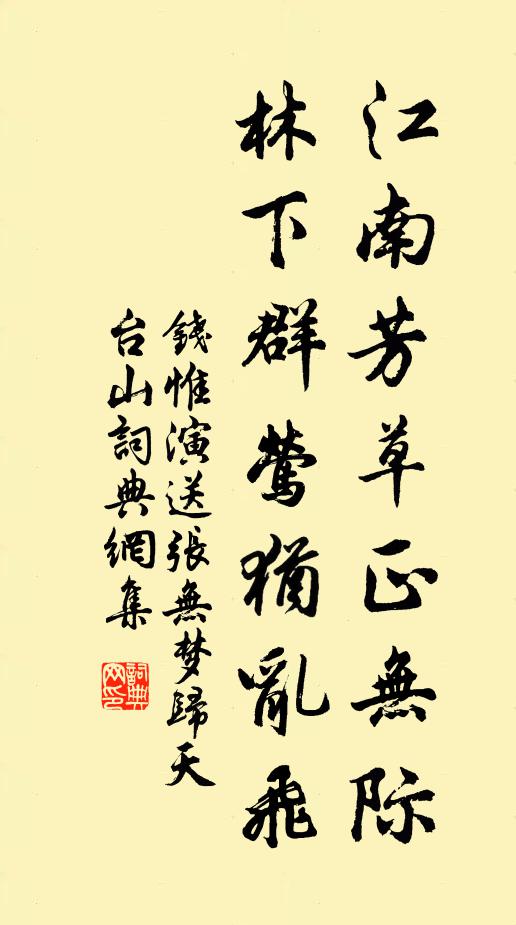 江南芳草正無際
林下群鶯猶亂飛
錢惟演送張無梦歸天
台山詞典網集
詞典網印